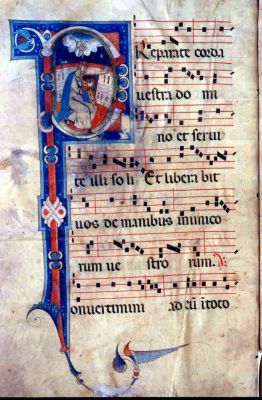 PReparate corda
uestra do mi
no et serui
te illi so li Et libera bit
uos de manibus inimico
rum ue stro rum.
Conuertimini ad eū ītoto